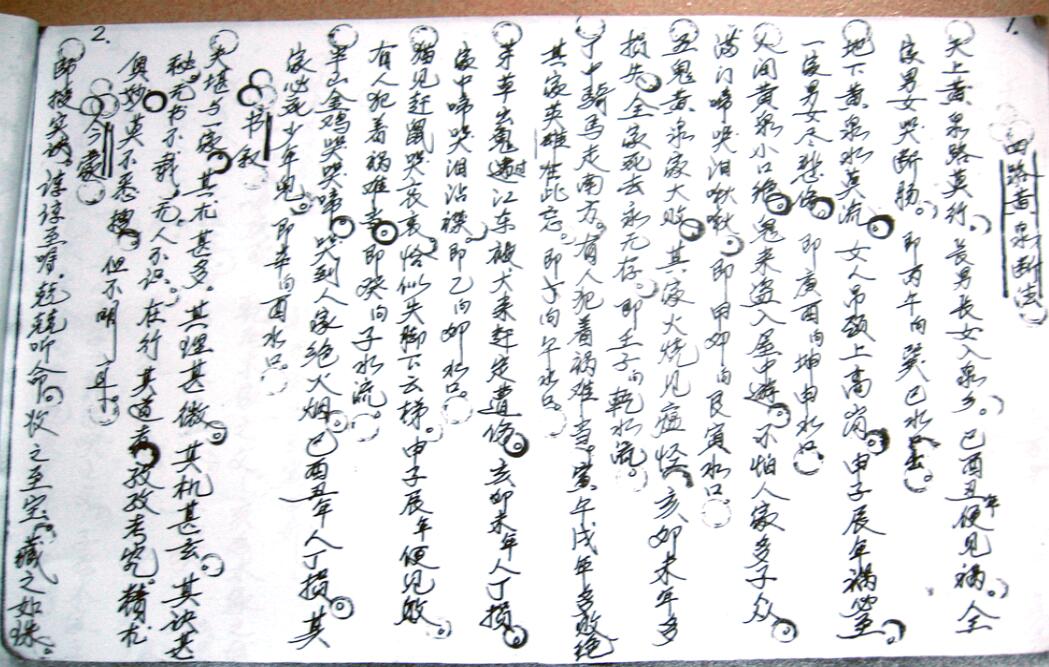 1.
四路黄泉断法
天上黄泉路莫行。长男长女入泉乡。巳酉丑年便见祸。全
家男女哭断肠。即丙午向巽巳水口出。
地下黄泉水莫流 女人吊颈上高岗 申子辰年祸必至。
一家男女尽悲伤 即庚酉向坤申水口
人间黄泉小口绝 鬼来盗入屋中游 不怕人家多子众
满门啼哭泪啾啾 即甲卯向艮寅水口
五鬼黄泉家大败 其家火烧见瘟怪 亥卯未年多
损失 全家死去永无存。即壬子向乾水流。
丁中骑马走南方。有人犯着祸难当。寅午戌年多败绝
其家英雄在此忘。即丁向午水口。
芽草出鬼过江东 被犬来赶定遭伤。亥卯未年人丁损
家中啼哭泪沾襟。即乙向卯水口。
猫见赶鼠哭哀哀 恰似失脚下云梯。申子辰年便见败。
有人犯着祸难当 即癸向子水流。
半山金鸡哭哭啼 哭到人家绝火烟 巳酉丑年人丁损 其
家必死少年鬼。即辛向酉水口。
书叙
夫堪与一家 其术甚多。其理甚微 其机甚玄 其诀甚
秘。无书不载 无人不识。在行其道者 孜孜考究。精尤
奥妙 莫不悉搜。但不明 耳。
2.
今家
即授实诀。谆谆至嘱。兢兢听命 收之至宝。藏之如珠。